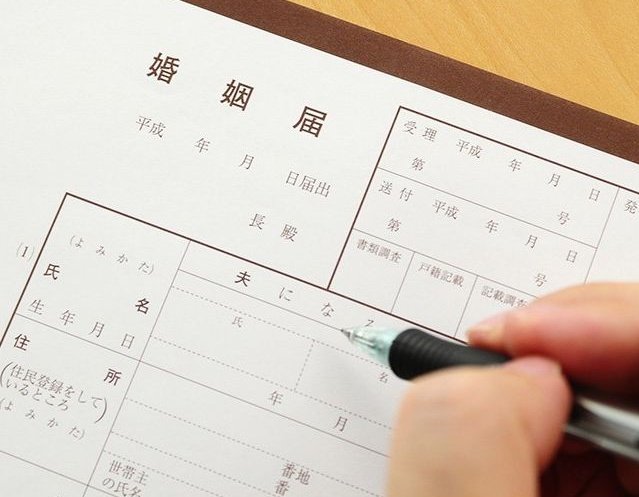 婚姻届
平成 年 月 日届出
長殿
受理 平成 年 月 日
第 号
送付 平成 年 月 日
第 号
書類調査 戸籍記載 記載調査
発
(1)
(よみかた)
氏名
生年月日
夫になる
氏 名
年 月
住所
(住民登録をして
いるところ)
(よみかた)
番地
番
世帯主
の氏名